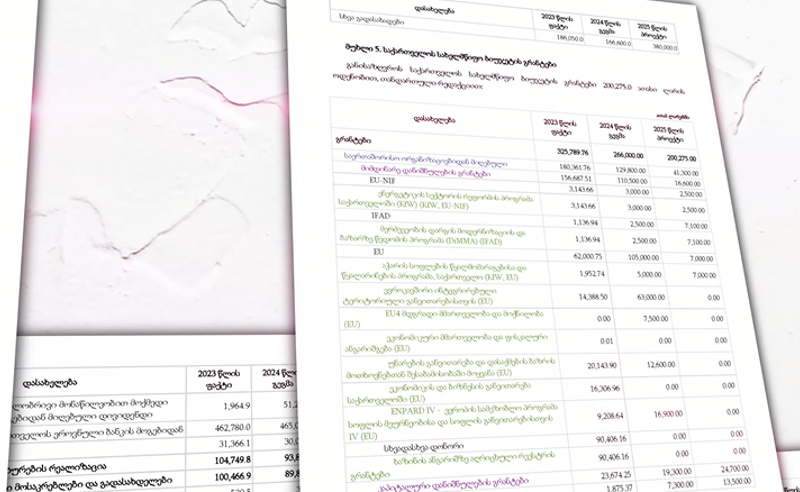 დასახელება 2023 წლის ფაქტი 2024 წლის გეგმა 2025 წლის პროექტი
სხვა გადასახადები 186,050.0 166,600.0 380,000.0
მუხლი 5. საქართველოს სახელმწიფო ბიუჯეტის გრანტები
განისაზღვროს საქართველოს სახელმწიფო ბიუჯეტის გრანტები 200,275.0 ათასი ლარის
ოდენობით, თანდართული რედაქციით:
ათას ლარებში
დასახელება 2023 წლის ფაქტი 2024 წლის გეგმა 2025 წლის პროექტი
გრანტები 325,789.76 266,000.00 200,275.00
საერთაშორისო ორგანიზაციებიდან მიღებული 180,361.76 129,800.00 41,300.00
მიმდინარე დანიშნულების გრანტები 156,687.51 110,500.00 16,600.00
EU-NIF 3,143.66 3,000.00 2,500.00
ენერგეტიკის სექტორის რეფორმის პროგრამა
საქართველოში (KfW) (KfW, EU-NIF) 3,143.66 3,000.00 2,500.00
IFAD 1,136.94 2,500.00 7,100.00
მერძევეობის დარგის მოდერნიზაციის და
ბაზარზე წვდომის პროგრამა (DiMMA) (IFAD) 1,136.94 2,500.00 7,100.00
EU 62,000.75 105,000.00 7,000.00
აჭარის სოფლების წყალმომარაგებისა და
წყალარინების პროგრამა, საქართველო (KfW, EU) 1,952.74 5,000.00 7,000.00
ევროკავშირი ინტეგრირებული
ტერიტორიული განვითარებისთვის (EU) 14,388.50 63,000.00 0.00
EU4 მდგრადი მმართველობა და მოქნილობა
(EU) 0.00 7,500.00 0.00
ეკონომიკური მმართველობა და ფისკალური
ანგარიშგება (EU) 0.01 0.00 0.00
უნარების განვითარება და დასაქმების ბაზრის
მოთხოვნებთან შესაბამისობაში მოყვანა (EU) 20,143.90 12,600.00 0.00
ეკონომიკის და ბიზნესის განვითარება
საქართველოში (EU) 16,306.96 0.00 0.00
ENPARD IV - ევროპის სამეზობლო პროგრამა
სოფლის მეურნეობისა და სოფლის განვითარებისთვის
IV (EU) 9,208.64 16,900.00 0.00
სხვადასხვა დონორი 90,406.16 0.00 0.00
ხაზინის ანგარიშზე აღრიცხული რეესტრის
გრანტები 90,406.16 0.00 0.00
კაპიტალური დანიშნულების გრანტები 23,674.25 19,300.00 24,700.00
1,875.37 7,300.00 13,500.00
დასახელება 2023 წლის ფაქტი 2024 წლის გეგმა
მონაწილეობით მოქმედი
მიღებული დივიდენდი 1,964.9
ეროვნული ბანკის მოგებიდან 462,780.0
31,366.1
რეალიზაცია 104,749.8
მოსაკრებლები და გადასახდელები 100,466.9